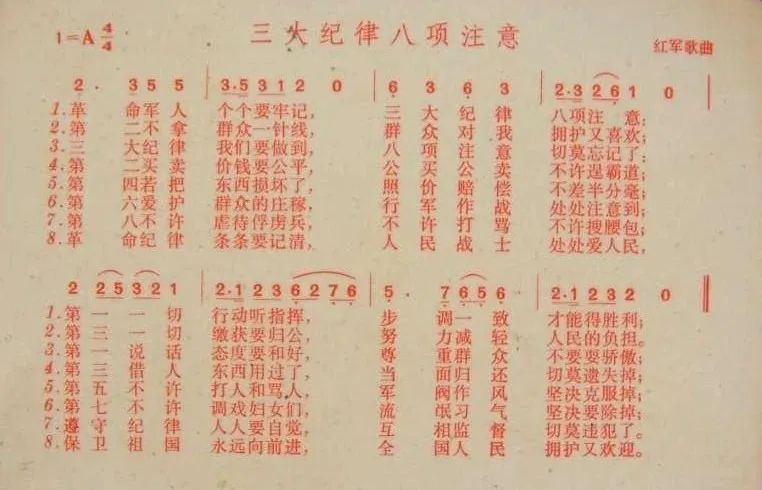 1=A 4/4 三大纪律八项注意 红军歌曲
2. 3 5 5 | 3·5 3 1 2 0 | 6 3 6 3 | 2·3 2 6 1 0 |
1.革命军人 个个要牢记, 三大纪律 八项注意;
2.第二不拿 群众一针线, 群众对我 拥护又喜欢;
3.三大纪律 我们要做到, 八项注意 切莫忘记了:
4.第二买卖 价钱要公平, 公买公卖 不许逞霸道;
5.第四若把 东西损坏了, 照价赔偿 不差半分毫;
6.第六爱护 群众的庄稼, 行军作战 处处注意到;
7.第八不许 虐待俘虏兵, 不许打骂 不许搜腰包;
8.革命纪律 条条要记清, 人民战士 处处爱人民,
2 2 5 3 2 1 | 2·1 2 3 6 2 7 6 | 5. 7 6 5 | 2·1 2 3 2 0
1.第一一切 行动听指挥, 步调一致 才能得胜利;
2.第三一切 缴获要归公, 努力减轻 人民负担.
3.第一说话 态度要和好, 尊重群众 不要骄傲;
4.第三借人 东西用过了, 当面归还 切莫遗失掉;
5.第五不许 打人和骂人, 军阀作风 坚决克服掉;
6.第七不许 调戏妇女们, 流氓习气 坚决要除掉;
7.遵守纪律 人人要自觉, 互相监督 切莫违犯了。
8.保卫祖国 永远向前进, 全国人民 拥护又欢迎。